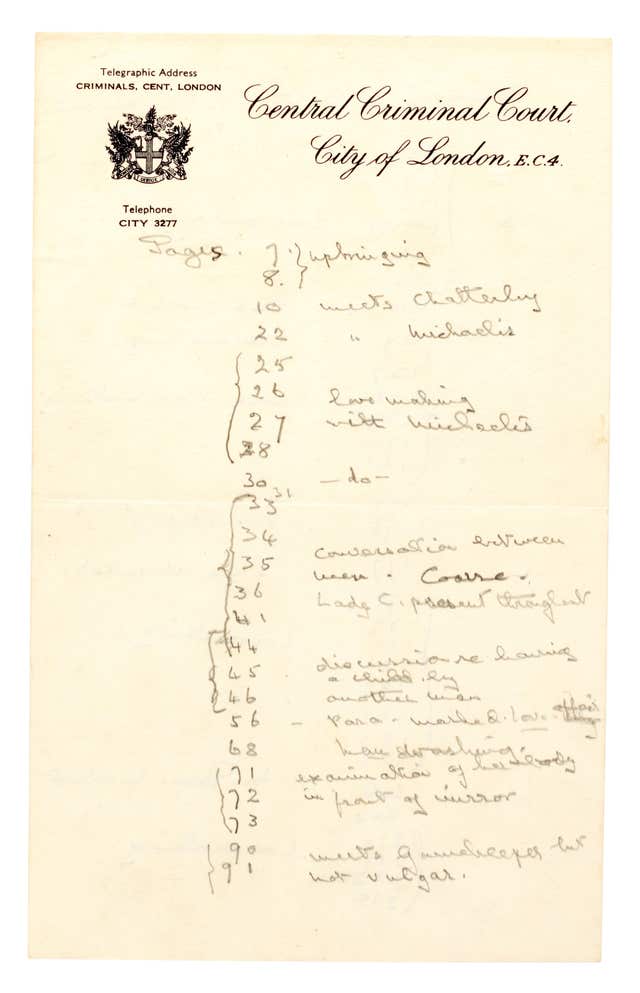 Telegraphic Address
CRIMINALS, CENT, LONDON
Central Criminal Court,
City of London, E.C.4.
Telephone
CITY 3277
Pages. 7. } upbringing
8. }
10 meets Chatterley
22 " Michaelis
25
26 love making
27 with Michaelis
28
30 — do —
31
33
34
35 conversation between
men. Coarse.
36 Lady C. present throughout
41
44
45 discussion re having
a child by
46 another man
56 – Para. marked. love affair
68 Man washing.
71 examination of her body
72 in front of mirror
73
90 meets Gamekeeper but
91 not vulgar.